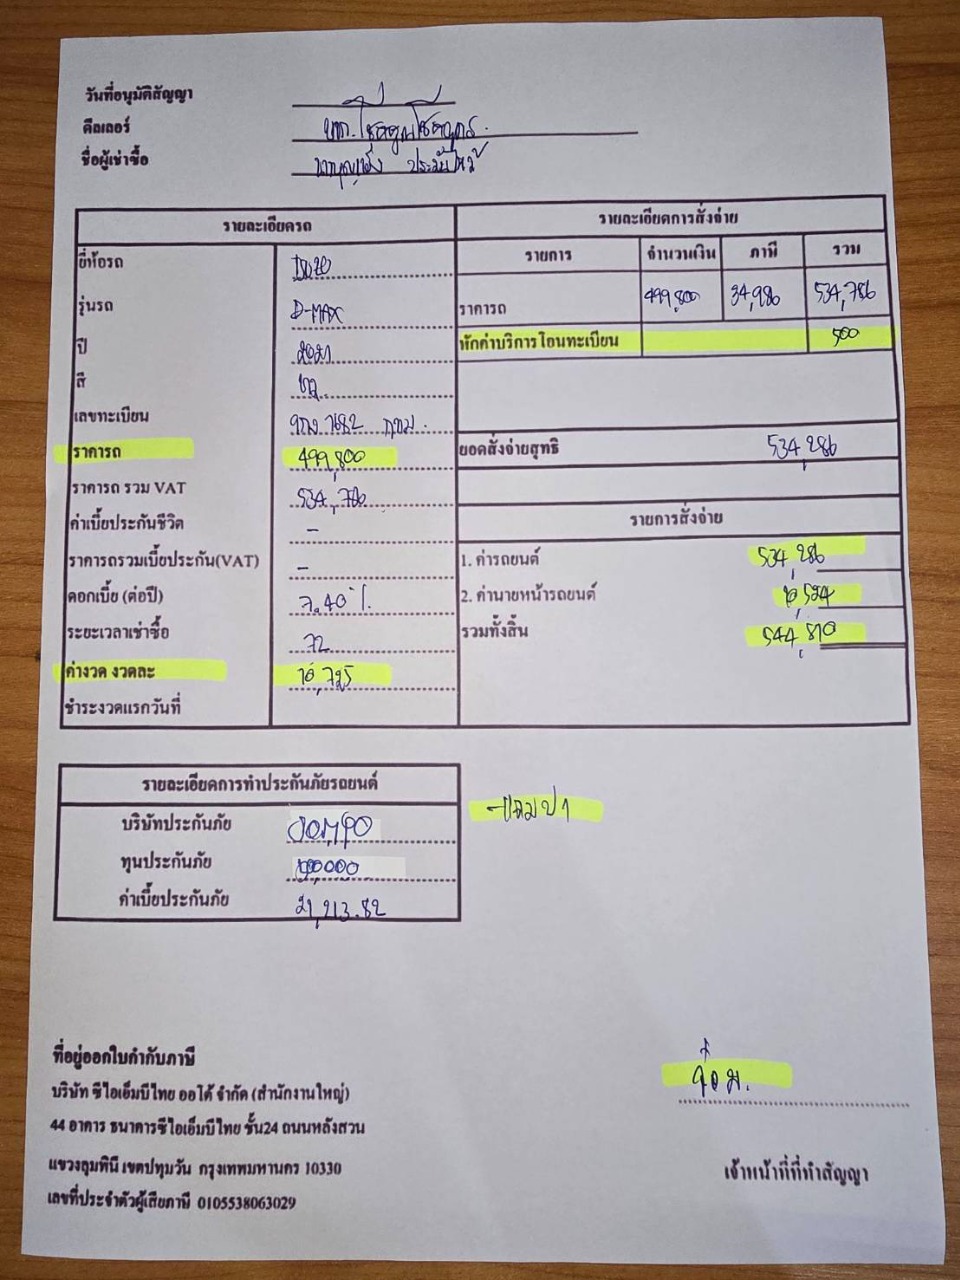 วันที่อนุมัติสัญญา
ดีลเลอร์
ชื่อผู้เช่าซื้อ
รายละเอียดรถ
ยี่ห้อรถ
รุ่นรถ D-MAX
ปี 2021
สี
เลขทะเบียน 7682 กทม.
ราคารถ 499,800
ราคารถ รวม VAT 534,786
ค่าเบี้ยประกันชีวิต -
ราคารถรวมเบี้ยประกัน(VAT) -
ดอกเบี้ย (ต่อปี) 7.40 %
ระยะเวลาเช่าซื้อ 72
ค่างวด งวดละ
ชำระงวดแรกวันที่
รายละเอียดการสั่งจ่าย
รายการ จำนวนเงิน ภาษี รวม
ราคารถ 499,800 34,986 534,786
หักค่าบริการโอนทะเบียน 500
ยอดสั่งจ่ายสุทธิ 534,286
รายการสั่งจ่าย
1. ค่ารถยนต์ 534,286
2. ค่านายหน้ารถยนต์ 10,524
รวมทั้งสิ้น 544,810
รายละเอียดการทำประกันภัยรถยนต์
บริษัทประกันภัย
ทุนประกันภัย
ค่าเบี้ยประกันภัย 21,213.82
- แถม ป1
ที่อยู่ออกใบกำกับภาษี
บริษัท ซีไอเอ็มบีไทย ออโต้ จำกัด (สำนักงานใหญ่)
44 อาคาร ธนาคารซีไอเอ็มบีไทย ชั้น24 ถนนหลังสวน
แขวงลุมพินี เขตปทุมวัน กรุงเทพมหานคร 10330
เลขที่ประจำตัวผู้เสียภาษี 0105538063029
เจ้าหน้าที่ที่ทำสัญญา